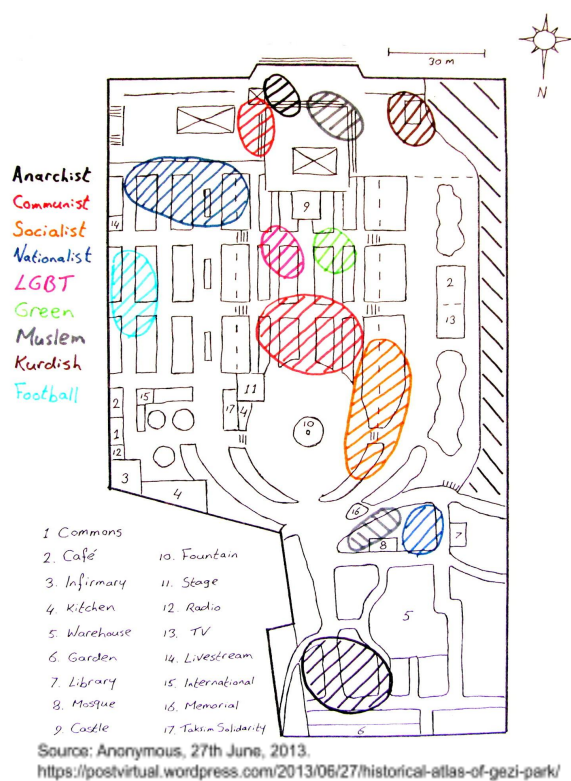 30 m
N
Anarchist
Communist
Socialist
Nationalist
LGBT
Green
Muslem
Kurdish
Football
9
14
2
13
2
15
1
12
17
4
11
10
3
4
16
8
7
5
6
1 Commons
2. Café
3. Infirmary
4. Kitchen
5. Warehouse
6. Garden
7. Library
8. Mosque
9 Castle
10. Fountain
11. Stage
12. Radio
13. TV
14. Livestream
15. International
16. Memorial
17. Taksim Solidarity
Source: Anonymous, 27th June, 2013.
https://postvirtual.wordpress.com/2013/06/27/historical-atlas-of-gezi-park/